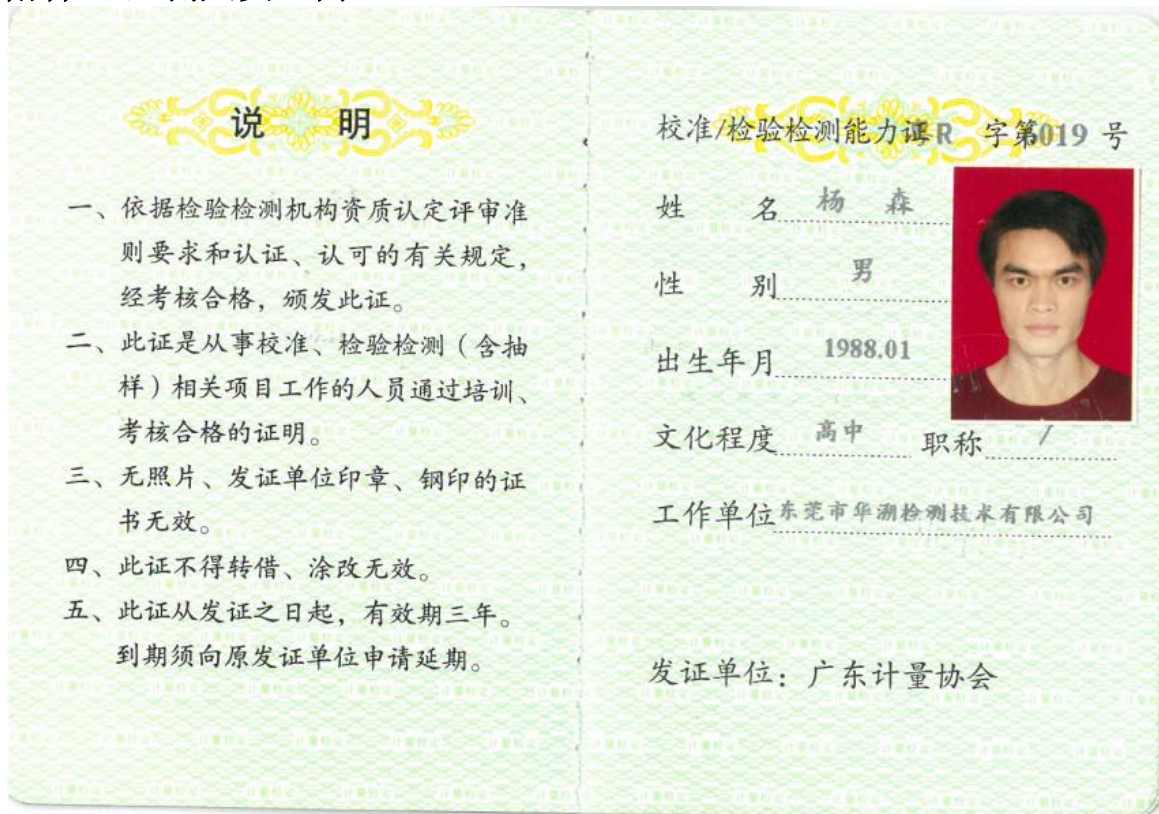 说 明
一、依据检验检测机构资质认定评审准
则要求和认证、认可的有关规定，
经考核合格，颁发此证。
二、此证是从事校准、检验检测（含抽
样）相关项目工作的人员通过培训、
考核合格的证明。
三、无照片、发证单位印章、钢印的证
书无效。
四、此证不得转借、涂改无效。
五、此证从发证之日起，有效期三年。
到期须向原发证单位申请延期。
校准/检验检测能力证 R 字第019 号
姓 名 杨 森
性 别 男
出生年月 1988.01
文化程度 高中 职称 /
工作单位 东莞市华溯检测技术有限公司
发证单位：广东计量协会